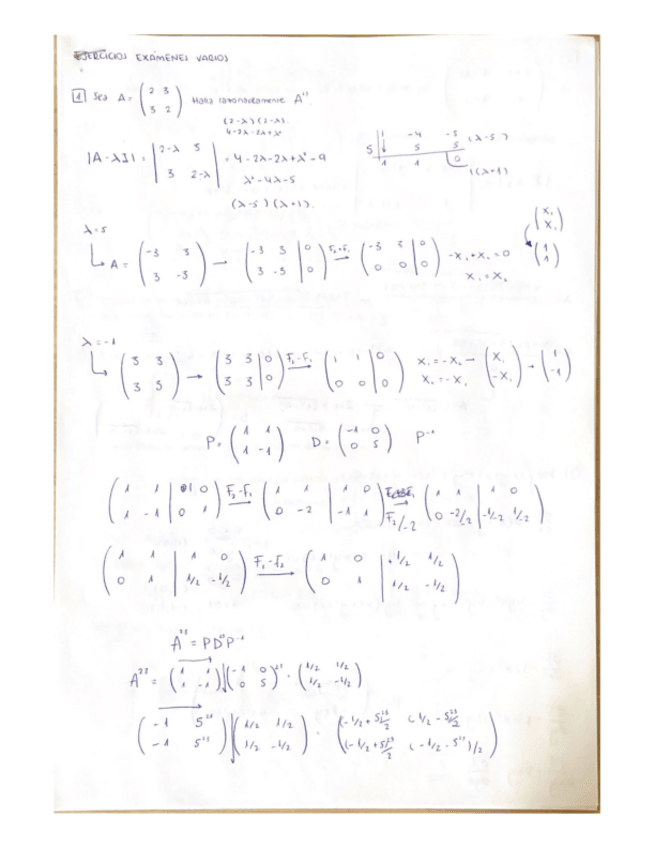 EJERCICIOS EXÁMENES VARIOS
1 Sea A = (2 3; 3 2) Halla razonadamente A
(2-λ)(2-λ).
4-2λ-2λ+λ²
|A-λI| = |2-λ 3; 3 2-λ| = 4-2λ-2λ+λ²-9
λ²-4λ-5
(λ-5)(λ+1).
1 -4 -5 (λ-5)
5 | 5 5
1 1 0
(λ+1)
λ=5
A = (-3 3; 3 -3) → (-3 3 | 0; 3 -3 | 0) → (-3 3 | 0; 0 0 | 0) -X₁+X₂=0
X₁=X₂
(X₁; X₁)
(1; 1)
λ=-1
(3 3; 3 3) → (3 3 | 0; 3 3 | 0) F₂-F₁ → (1 1 | 0; 0 0 | 0) X₁=-X₂ → (X₁; -X₁) → (1; -1)
X₂=-X₁
P = (1 1; 1 -1) D = (-1 0; 0 5) P⁻¹
(1 1 | 1 0; 1 -1 | 0 1) F₂-F₁ → (1 1 | 1 0; 0 -2 | -1 1) F₂/-2 → (1 1 | 1 0; 0 -2/-2 | -1/-2 1/-2)
(1 1 | 1 0; 0 1 | 1/2 -1/2) F₁-F₂ → (1 0 | 1/2 1/2; 0 1 | 1/2 -1/2)
A²³ = PD²³P⁻¹
A²³ = (1 1; 1 -1) (-1 0; 0 5)²³ · (1/2 1/2; 1/2 -1/2)
(-1 5²³; -1 5²³) (1/2 1/2; 1/2 -1/2) · (-1/2+5²³/2 (-1/2-5²³/2; (-1/2+5²³/2 (-1/2-5²³)/2)